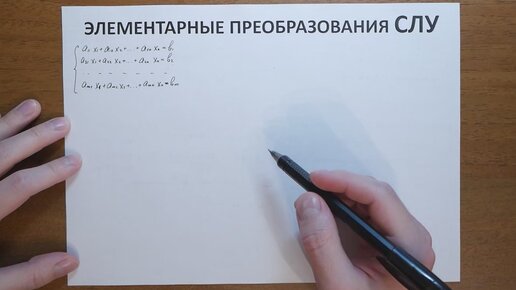 ЭЛЕМЕНТАРНЫЕ ПРЕОБРАЗОВАНИЯ СЛУ
a₁₁ x₁ + a₁₂ x₂ + ... + a₁ₙ xₙ = b₁
a₂₁ x₁ + a₂₂ x₂ + ... + a₂ₙ xₙ = b₂
.. - - - - - -
aₘ₁ x₁ + aₘ₂ x₂ + ... + aₘₙ xₙ = bₘ